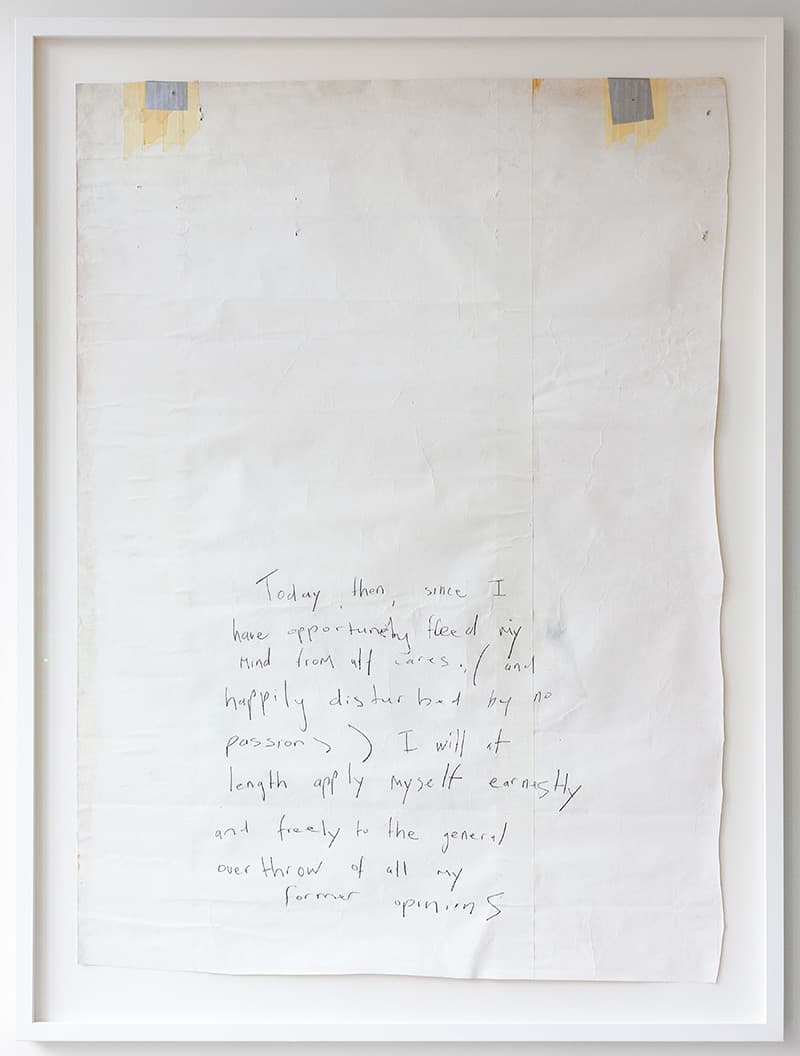 Today, then, since I
have opportunely fleed my
mind from all cares., (and
happily disturbed by no
passions) I will at
length apply myself earnestly
and freely to the general
overthrow of all my
former opinions